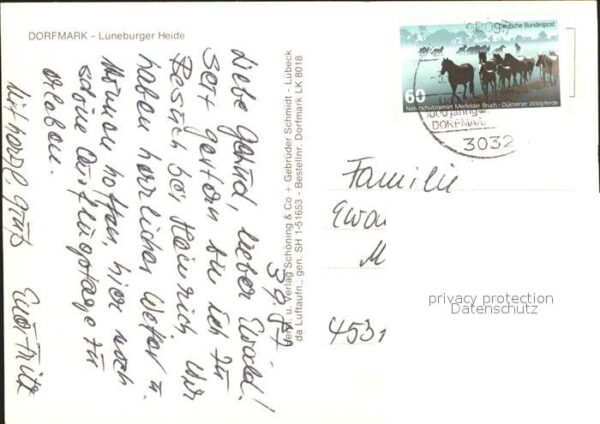 DORFMARK - Lüneburger Heide
3.9.87
Liebe Gertrud, lieber Ewald!
Seit gestern bin ich zu
Besuch bei Heinrich. Wir
haben herrliches Wetter u.
können hoffen, hier noch
schöne Ausflugstage zu
erleben.
Mit herzl. Gruß
Euer Fritz
Verl. u. Verlag Schöning & Co + Gebrüder Schmidt - Lübeck
da Luftaufn., gen. SH 1-51653 - Bestellnr. Dorfmark LK 8018
Deutsche Bundespost
60
Naturschutzgebiet Merfelder Bruch - Dülmener Wildpferde
DORFMAR
3032
Familie
Ewa
M
4531
privacy protection
Datenschutz